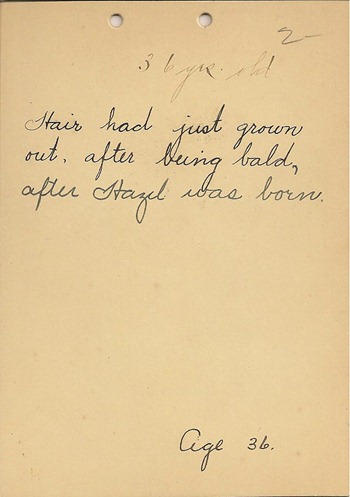 2-
36 yrs. old
Hair had just grown
out, after being bald,
after Hazel was born.
Age 36.